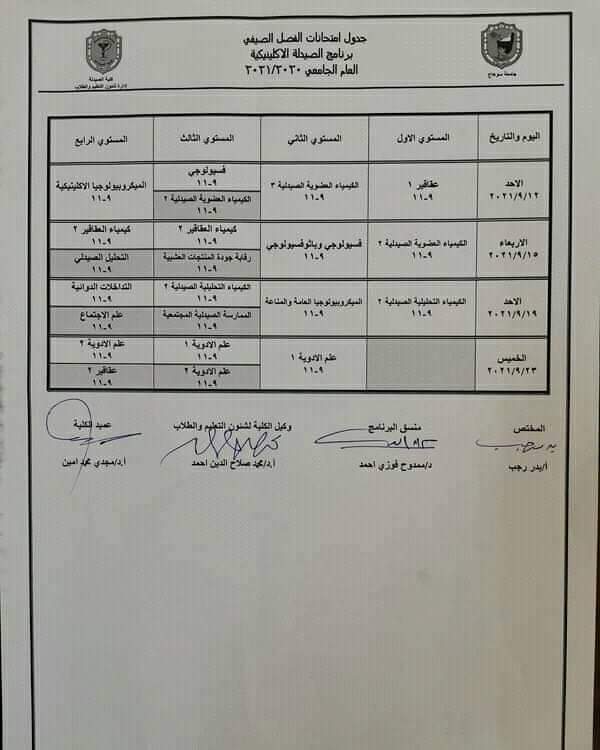 جدول امتحانات الفصل الصيفي
برنامج الصيدلة الاكلينيكية
العام الجامعي ٢٠٢١/٢٠٢٠
جامعة سوهاج
كلية الصيدلة
ادارة شئون التعليم والطلاب
اليوم والتاريخ المستوي الاول المستوي الثاني المستوي الثالث المستوي الرابع
الاحد
٢٠٢١/٩/١٢
عقاقير ١
٩-١١
الكيمياء العضوية الصيدلية ٣
٩-١١
فسيولوجي
٩-١١
الكيمياء العضوية الصيدلية ٢
٩-١١
الميكروبيولوجيا الاكلينيكية
٩-١١
الاربعاء
٢٠٢١/٩/١٥
الكيمياء العضوية الصيدلية ٢
٩-١١
فسيولوجي وباثوفسيولوجي
٩-١١
كيمياء العقاقير ٢
٩-١١
رقابة جودة المنتجات العشبية
٩-١١
كيمياء العقاقير ٢
٩-١١
التحليل الصيدلي
٩-١١
الاحد
٢٠٢١/٩/١٩
الكيمياء التحليلية الصيدلية ٢
٩-١١
الميكروبيولوجيا العامة والمناعة
٩-١١
الكيمياء التحليلية الصيدلية ٢
٩-١١
الممارسة الصيدلية المجتمعية
٩-١١
التداخلات الدوائية
٩-١١
علم الاجتماع
٩-١١
الخميس
٢٠٢١/٩/٢٣
علم الادوية ١
٩-١١
علم الادوية ١
٩-١١
علم الادوية ٢
٩-١١
علم الادوية ٢
٩-١١
عقاقير ٢
٩-١١
المختص منسق البرنامج وكيل الكلية لشئون التعليم والطلاب عميد الكلية
أ/بدر رجب د/ممدوح فوزي احمد أ.د/محمد صلاح الدين احمد أ.د/مجدي محمد امين